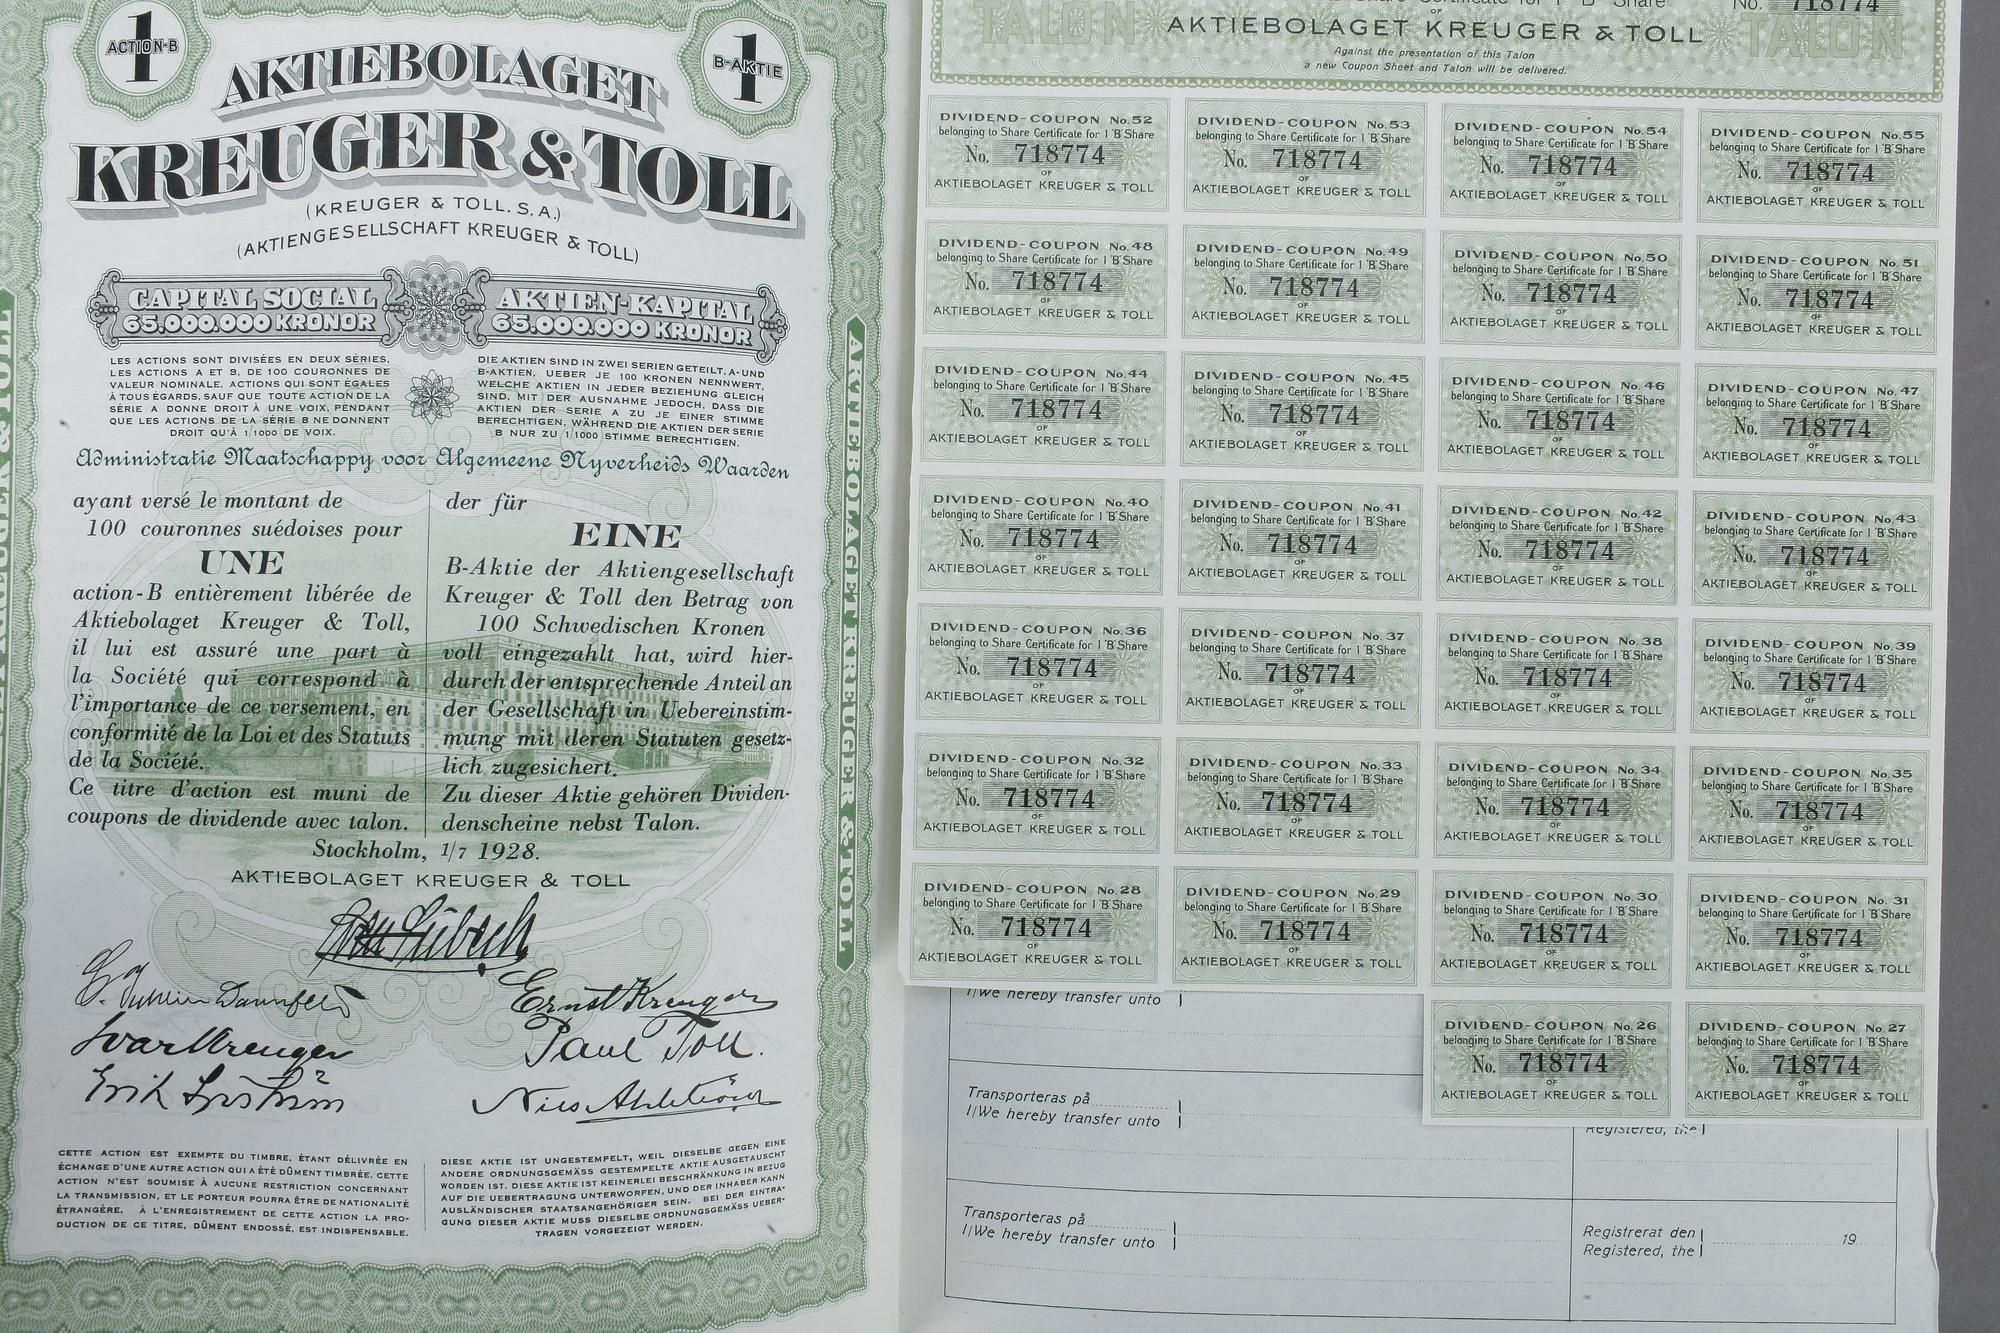 1
ACTION-B
1
B-AKTIE
AKTIEBOLAGET
KREUGER & TOLL
(KREUGER & TOLL. S.A.)
(AKTIENGESELLSCHAFT KREUGER & TOLL)
CAPITAL SOCIAL
65.000.000 KRONOR
AKTIEN-KAPITAL
65.000.000 KRONOR
LES ACTIONS SONT DIVISÉES EN DEUX SÉRIES,
LES ACTIONS A ET B, DE 100 COURONNES DE
VALEUR NOMINALE, ACTIONS QUI SONT ÉGALES
À TOUS ÉGARDS, SAUF QUE TOUTE ACTION DE LA
SÉRIE A DONNE DROIT À UNE VOIX, PENDANT
QUE LES ACTIONS DE LA SÉRIE B NE DONNENT
DROIT QU'À 1/1000 DE VOIX.
DIE AKTIEN SIND IN ZWEI SERIEN GETEILT, A- UND
B-AKTIEN, UEBER JE 100 KRONEN NENNWERT,
WELCHE AKTIEN IN JEDER BEZIEHUNG GLEICH
SIND, MIT DER AUSNAHME JEDOCH, DASS DIE
AKTIEN DER SERIE A ZU JE EINER STIMME
BERECHTIGEN, WÄHREND DIE AKTIEN DER SERIE
B NUR ZU 1/1000 STIMME BERECHTIGEN.
Administratie Maatschappy voor Algemeene Nyverheids Waarden
ayant versé le montant de
100 couronnes suédoises pour
UNE
action-B entièrement libérée de
Aktiebolaget Kreuger & Toll,
il lui est assuré une part à
la Société qui correspond à
l'importance de ce versement, en
conformité de la Loi et des Statuts
de la Société.
Ce titre d'action est muni de
coupons de dividende avec talon.
der für
EINE
B-Aktie der Aktiengesellschaft
Kreuger & Toll den Betrag von
100 Schwedischen Kronen
voll eingezahlt hat, wird hier-
durch der entsprechende Anteil an
der Gesellschaft in Uebereinstim-
mung mit deren Statuten gesetz-
lich zugesichert.
Zu dieser Aktie gehören Dividen-
denscheine nebst Talon.
Stockholm, 1/7 1928.
AKTIEBOLAGET KREUGER & TOLL
Ernst Kreuger
Ivar Kreuger
Paul Toll.
Erik Sjöström
Nils Ahlström
CETTE ACTION EST EXEMPTE DU TIMBRE, ÉTANT DÉLIVRÉE EN
ÉCHANGE D'UNE AUTRE ACTION QUI A ÉTÉ DÛMENT TIMBRÉE. CETTE
ACTION N'EST SOUMISE À AUCUNE RESTRICTION CONCERNANT
LA TRANSMISSION, ET LE PORTEUR POURRA ÊTRE DE NATIONALITÉ
ÉTRANGÈRE. À L'ENREGISTREMENT DE CETTE ACTION LA PRO-
DUCTION DE CE TITRE, DÛMENT ENDOSSÉ, EST INDISPENSABLE.
DIESE AKTIE IST UNGESTEMPELT, WEIL DIESELBE GEGEN EINE
ANDERE ORDNUNGSGEMÄSS GESTEMPELTE AKTIE AUSGETAUSCHT
WORDEN IST. DIESE AKTIE IST KEINERLEI BESCHRÄNKUNG IN BEZUG
AUF DIE UEBERTRAGUNG UNTERWORFEN, UND DER INHABER KANN
AUSLÄNDISCHER STAATSANGEHÖRIGER SEIN. BEI DER EINTRA-
GUNG DIESER AKTIE MUSS DIESELBE ORDNUNGSGEMÄSS UEBER-
TRAGEN VORGEZEIGT WERDEN.
AKTIEBOLAGET KREUGER & TOLL
Share Certificate for 1 "B" Share No. 718774
TALON TALON
OF
AKTIEBOLAGET KREUGER & TOLL
Against the presentation of this Talon
a new Coupon Sheet and Talon will be delivered.
DIVIDEND-COUPON No. 52
belonging to Share Certificate for 1 'B' Share
No. 718774
OF
AKTIEBOLAGET KREUGER & TOLL
DIVIDEND-COUPON No. 53
belonging to Share Certificate for 1 'B' Share
No. 718774
OF
AKTIEBOLAGET KREUGER & TOLL
DIVIDEND-COUPON No. 54
belonging to Share Certificate for 1 'B' Share
No. 718774
OF
AKTIEBOLAGET KREUGER & TOLL
DIVIDEND-COUPON No. 55
belonging to Share Certificate for 1 'B' Share
No. 718774
OF
AKTIEBOLAGET KREUGER & TOLL
DIVIDEND-COUPON No. 48
belonging to Share Certificate for 1 'B' Share
No. 718774
OF
AKTIEBOLAGET KREUGER & TOLL
DIVIDEND-COUPON No. 49
belonging to Share Certificate for 1 'B' Share
No. 718774
OF
AKTIEBOLAGET KREUGER & TOLL
DIVIDEND-COUPON No. 50
belonging to Share Certificate for 1 'B' Share
No. 718774
OF
AKTIEBOLAGET KREUGER & TOLL
DIVIDEND-COUPON No. 51
belonging to Share Certificate for 1 'B' Share
No. 718774
OF
AKTIEBOLAGET KREUGER & TOLL
DIVIDEND-COUPON No. 44
belonging to Share Certificate for 1 'B' Share
No. 718774
OF
AKTIEBOLAGET KREUGER & TOLL
DIVIDEND-COUPON No. 45
belonging to Share Certificate for 1 'B' Share
No. 718774
OF
AKTIEBOLAGET KREUGER & TOLL
DIVIDEND-COUPON No. 46
belonging to Share Certificate for 1 'B' Share
No. 718774
OF
AKTIEBOLAGET KREUGER & TOLL
DIVIDEND-COUPON No. 47
belonging to Share Certificate for 1 'B' Share
No. 718774
OF
AKTIEBOLAGET KREUGER & TOLL
DIVIDEND-COUPON No. 40
belonging to Share Certificate for 1 'B' Share
No. 718774
OF
AKTIEBOLAGET KREUGER & TOLL
DIVIDEND-COUPON No. 41
belonging to Share Certificate for 1 'B' Share
No. 718774
OF
AKTIEBOLAGET KREUGER & TOLL
DIVIDEND-COUPON No. 42
belonging to Share Certificate for 1 'B' Share
No. 718774
OF
AKTIEBOLAGET KREUGER & TOLL
DIVIDEND-COUPON No. 43
belonging to Share Certificate for 1 'B' Share
No. 718774
OF
AKTIEBOLAGET KREUGER & TOLL
DIVIDEND-COUPON No. 36
belonging to Share Certificate for 1 'B' Share
No. 718774
OF
AKTIEBOLAGET KREUGER & TOLL
DIVIDEND-COUPON No. 37
belonging to Share Certificate for 1 'B' Share
No. 718774
OF
AKTIEBOLAGET KREUGER & TOLL
DIVIDEND-COUPON No. 38
belonging to Share Certificate for 1 'B' Share
No. 718774
OF
AKTIEBOLAGET KREUGER & TOLL
DIVIDEND-COUPON No. 39
belonging to Share Certificate for 1 'B' Share
No. 718774
OF
AKTIEBOLAGET KREUGER & TOLL
DIVIDEND-COUPON No. 32
belonging to Share Certificate for 1 'B' Share
No. 718774
OF
AKTIEBOLAGET KREUGER & TOLL
DIVIDEND-COUPON No. 33
belonging to Share Certificate for 1 'B' Share
No. 718774
OF
AKTIEBOLAGET KREUGER & TOLL
DIVIDEND-COUPON No. 34
belonging to Share Certificate for 1 'B' Share
No. 718774
OF
AKTIEBOLAGET KREUGER & TOLL
DIVIDEND-COUPON No. 35
belonging to Share Certificate for 1 'B' Share
No. 718774
OF
AKTIEBOLAGET KREUGER & TOLL
DIVIDEND-COUPON No. 28
belonging to Share Certificate for 1 'B' Share
No. 718774
OF
AKTIEBOLAGET KREUGER & TOLL
DIVIDEND-COUPON No. 29
belonging to Share Certificate for 1 'B' Share
No. 718774
OF
AKTIEBOLAGET KREUGER & TOLL
DIVIDEND-COUPON No. 30
belonging to Share Certificate for 1 'B' Share
No. 718774
OF
AKTIEBOLAGET KREUGER & TOLL
DIVIDEND-COUPON No. 31
belonging to Share Certificate for 1 'B' Share
No. 718774
OF
AKTIEBOLAGET KREUGER & TOLL
DIVIDEND-COUPON No. 26
belonging to Share Certificate for 1 'B' Share
No. 718774
OF
AKTIEBOLAGET KREUGER & TOLL
DIVIDEND-COUPON No. 27
belonging to Share Certificate for 1 'B' Share
No. 718774
OF
AKTIEBOLAGET KREUGER & TOLL
I/We hereby transfer unto
Transporteras på
I/We hereby transfer unto
Registered, the
Transporteras på
I/We hereby transfer unto
Registrerat den
Registered, the
19